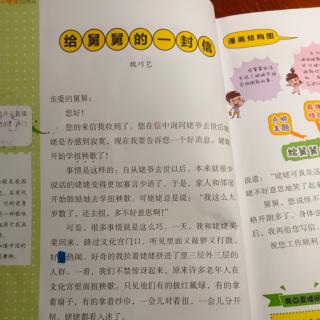 给舅舅的一封信
魏巧艺
亲爱的舅舅：
您好！
您的来信我收到了。您在信中询问姥爷去世后姥
姥是否感到寂寞。现在我要告诉您一个好消息，姥姥
开始学扭秧歌了！
事情是这样的：自从姥爷去世以后，本来就很少
说话的姥姥变得更加寡言少语了。于是，家人和邻居
开始鼓励她去学扭秧歌。可姥姥总是说：“我这么大
岁数了，还去扭，多不好意思啊！”
可是，很多事情就是这么巧。一天，我和姥姥买
菜回来，路过文化宫门口，听见里面又敲锣又打鼓，
好 热闹。好奇的我拉着姥姥挤进了里三层外三层的
人群。一看，我们不禁惊叹起来，原来许多老年人在
文化宫里面扭秧歌。只见他们有的披红戴绿，有的拿
着扇子，有的拿着纱巾，一会儿对着扭，一会儿分开
扭，姥姥都看入迷了。
漫画结构图
点明
主题
给舅舅
说道：“姥姥可真是返
姥不好意思地笑了起来
舅舅，您说怪不
格开朗多了，身体也
后，我再给您写信。
祝您工作顺利